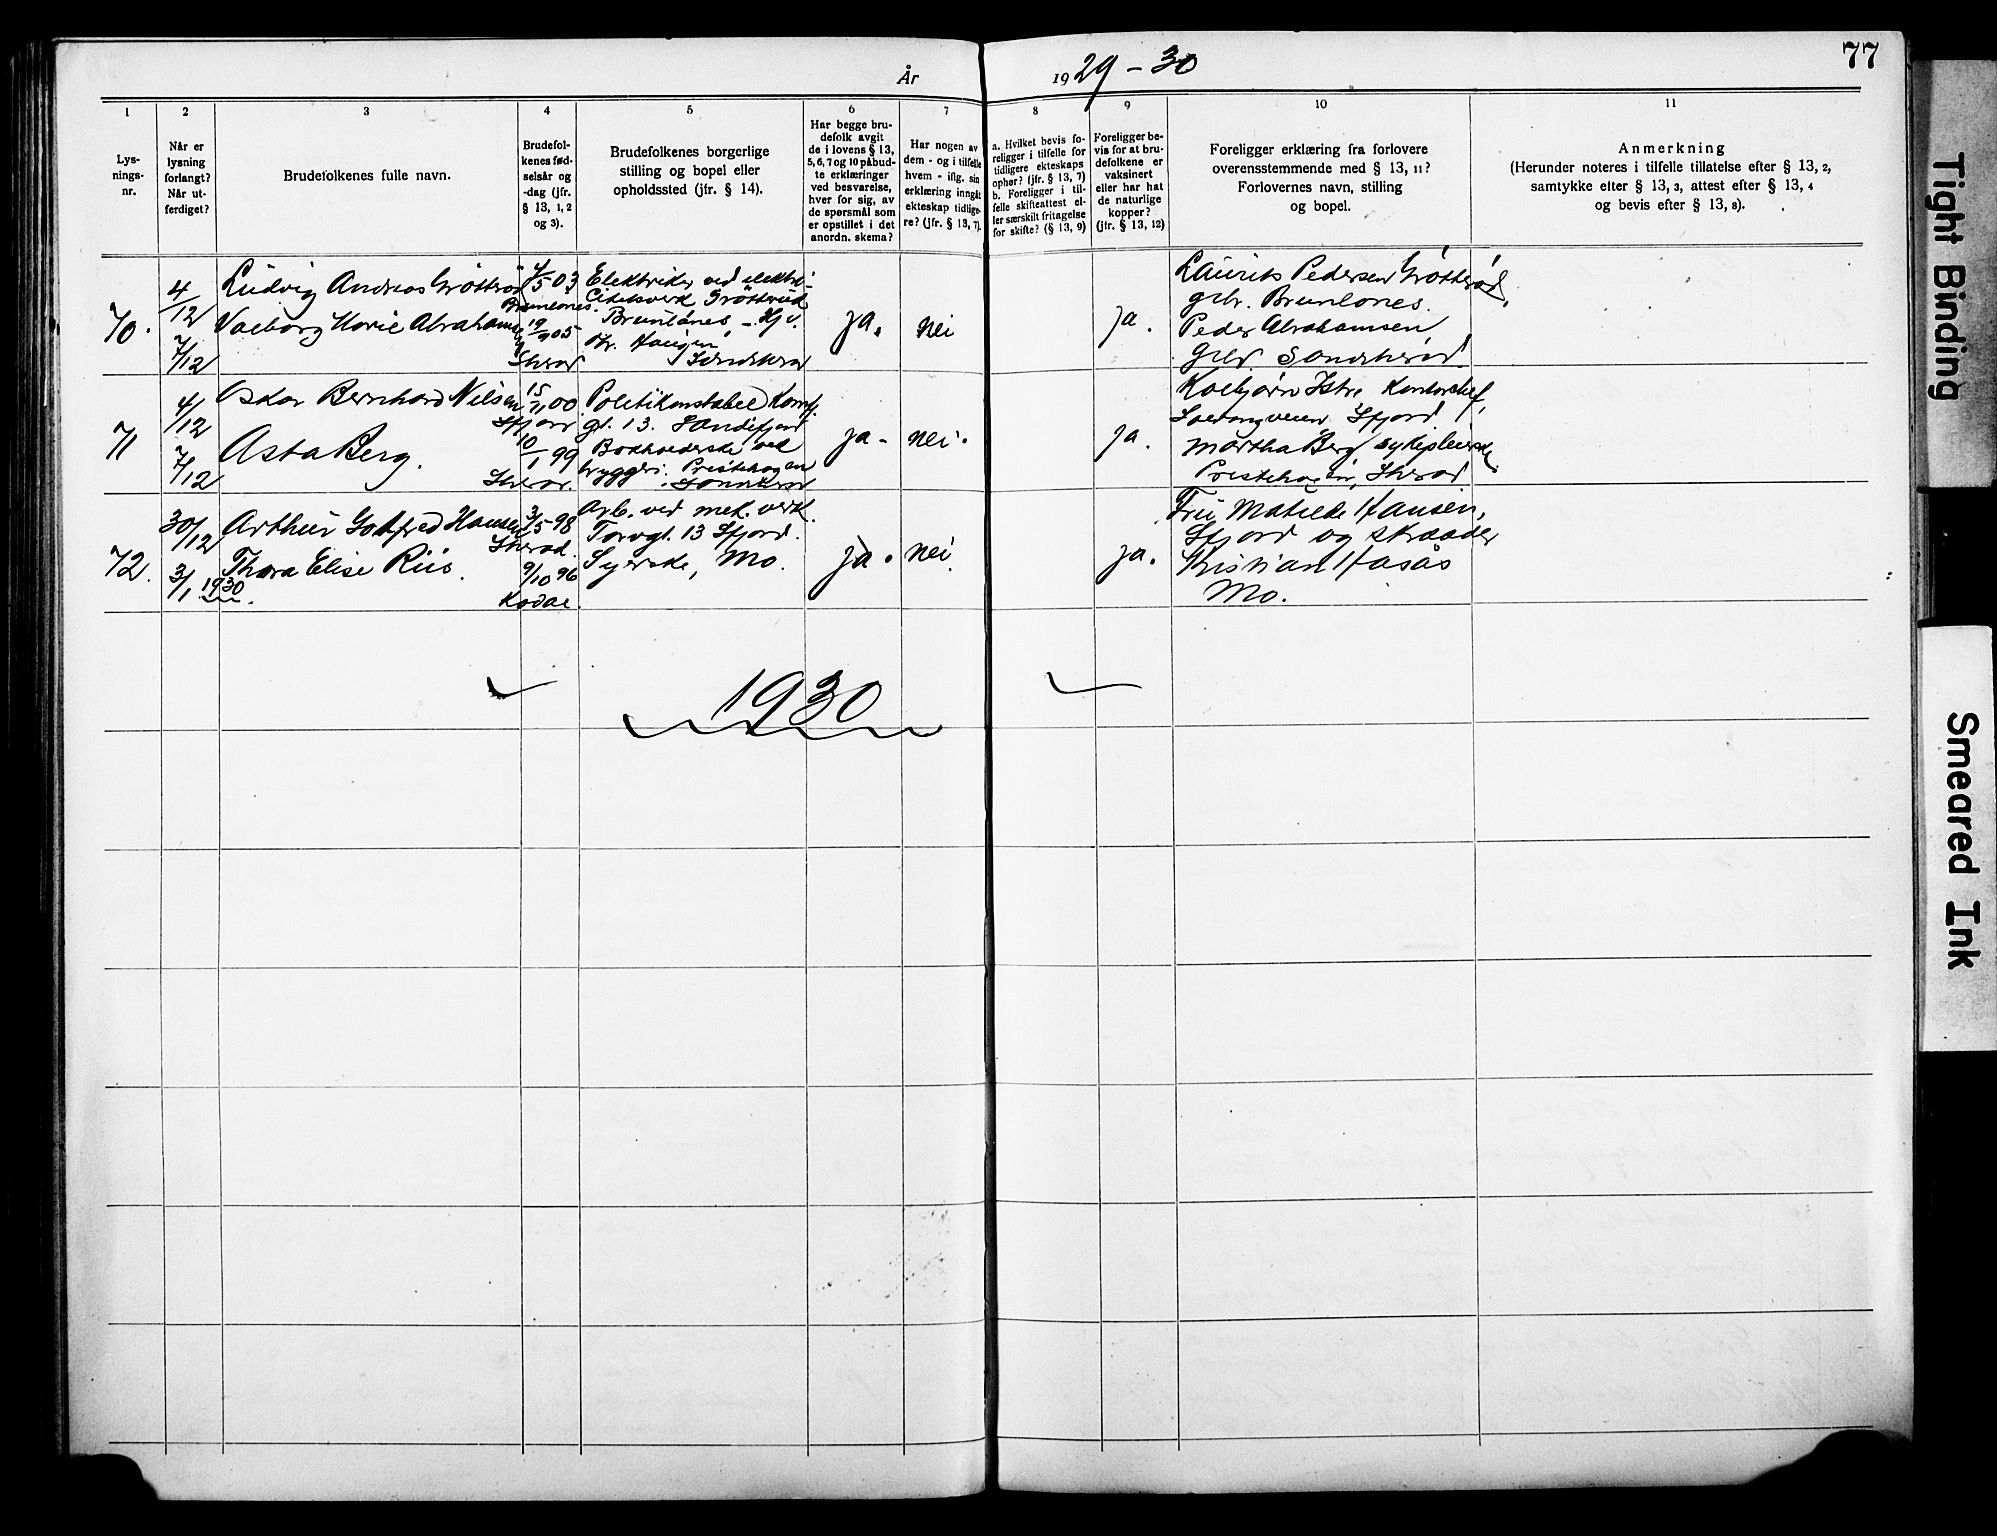 År 1929–30
77
1
Lys-
nings-
nr.
2
Når er
lysning
forlangt?
Når ut-
ferdiget?
3
Brudefolkenes fulle navn.
4
Brudefol-
kenes fød-
selsår og
-dag (jfr.
§ 13, 1, 2
og 3).
5
Brudefolkenes borgerlige
stilling og bopel eller
opholdssted (jfr. § 14).
6
Har begge bru-
defolk avgit
de i lovens § 13,
5, 6, 7 og 10 påbud-
te erklæringer
ved besvarelse,
hver for sig, av
de spørsmål som
er opstillet i det
anordn. skema?
7
Har nogen av
dem - og i tilfelle
hvem - iflg. sin
erklæring inngåt
ekteskap tidlige-
re? (jfr. § 13, 7).
8
a. Hvilket bevis fo-
religger i tilfelle for
tidligere ekteskaps
ophør? (jfr. § 13, 7)
b. Foreligger i til-
felle skifteattest el-
ler særskilt fritagelse
for skifte? (§ 13, 9)
9
Foreligger be-
vis for at bru-
defolkene er
vaksinert
eller har hat
de naturlige
kopper?
(jfr. § 13, 12)
10
Foreligger erklæring fra forlovere
overensstemmende med § 13, 11?
Forlovernes navn, stilling
og bopel.
11
Anmerkning
(Herunder noteres i tilfelle tillatelse efter § 13, 2,
samtykke efter § 13, 3, attest efter § 13, 4
og bevis efter § 13, 8).
70.
4/12
7/12
Ludvig Andreas Grøtterød
Valborg Marie Abrahamsen
7/5 03
Brunlanes.
19/9 05
Skerød
Elektriker ved elektri-
citetsverk Grøtterød
Brunlanes, - Hjv.
Hr. Haugen,
Sandeherad
ja.
nei
ja.
Laurits Pedersen Grøtterød,
gbr. Brunlanes.
Peder Abrahamsen
gbr Sandeherad
71
4/12
7/12
Oskar Bernhard Nilsen
Asta Berg.
15/11 00
Sfjord
10/1 99
Sherar.
Politikonstabel Kongs.
gt. 13. Sandefjord
Bokholderske ved
bryggeri. Prestehagen
Sandeherad
ja -
nei.
ja.
Kolbjørn Istre Kontorchef,
Sfjord
Martha Berg sykepleierske
Prestehagen, Sherad
72.
30/12
3/1 1930.
Arthur Gotfred Hansen
Thora Elise Riis.
3/5 98
Sherad.
9/10 96
Kodal.
Arb. ved mek. verk.
Torvgt. 13 Sfjord.
Syerske, Mo.
ja.
nei.
ja.
Fru Matilde Hansen,
Sfjord og skrædder
Kristian Hasås
Mo.
1930
Tight Binding
Smeared Ink